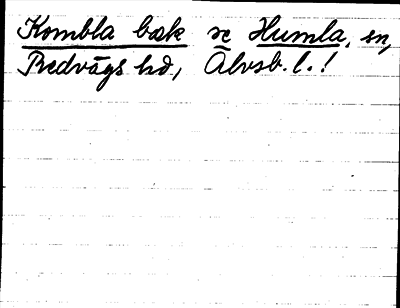 Kombla bæk se Humla, sn,
Redvägs hd, Älvsb. l.!